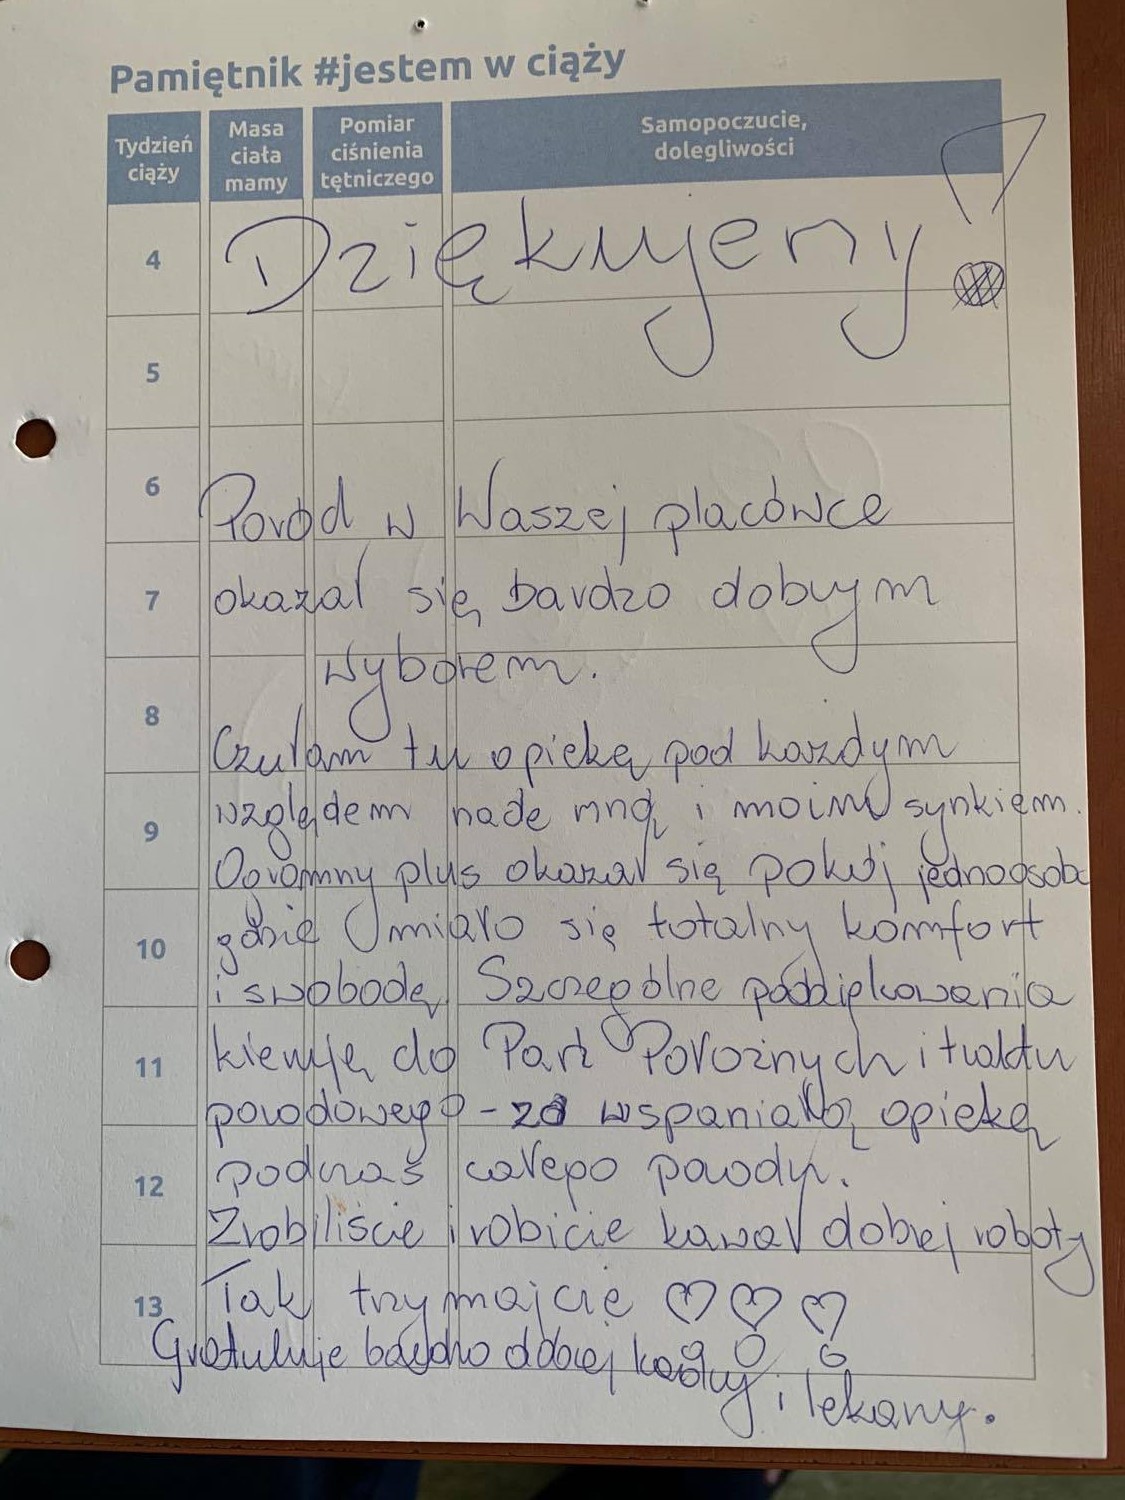 Pamiętnik #jestem w ciąży
Tydzień
ciąży
Masa
ciała
mamy
Pomiar
ciśnienia
tętniczego
Samopoczucie,
dolegliwości
4
Dziękujemy!
5
6
Poród w Waszej placówce
7
okazał się bardzo dobrym
wyborem.
8
Czułam tu opiekę pod każdym
9
względem nade mną i moim synkiem.
Ogromny plus okazał się pokój jednoosob
10
gdzie miało się totalny komfort
i swobodę. Szczególne podziękowania
11
kieruję do Pań Położnych i traktu
porodowego - za wspaniałą opiekę
12
podczas całego porodu.
Zrobiliście i robicie kawał dobrej roboty
13
Tak trzymajcie ♡ ♡ ♡
Gratuluję bardzo dobrej kadry i lekarzy.